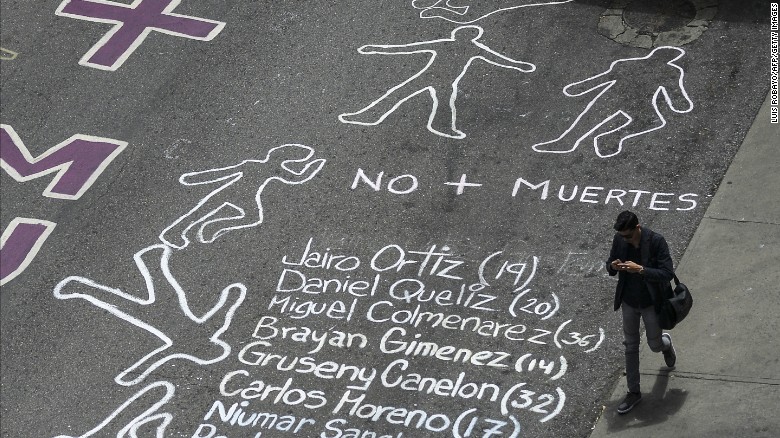 NO + MUERTES
Jairo Ortiz (19)
Daniel Queliz (20)
Miguel Colmenarez (36)
Brayan Gimenez (14)
Gruseny Canelon (32)
Carlos Moreno (17)
Niumar
LUIS ROBAYO/AFP/GETTY IMAGES